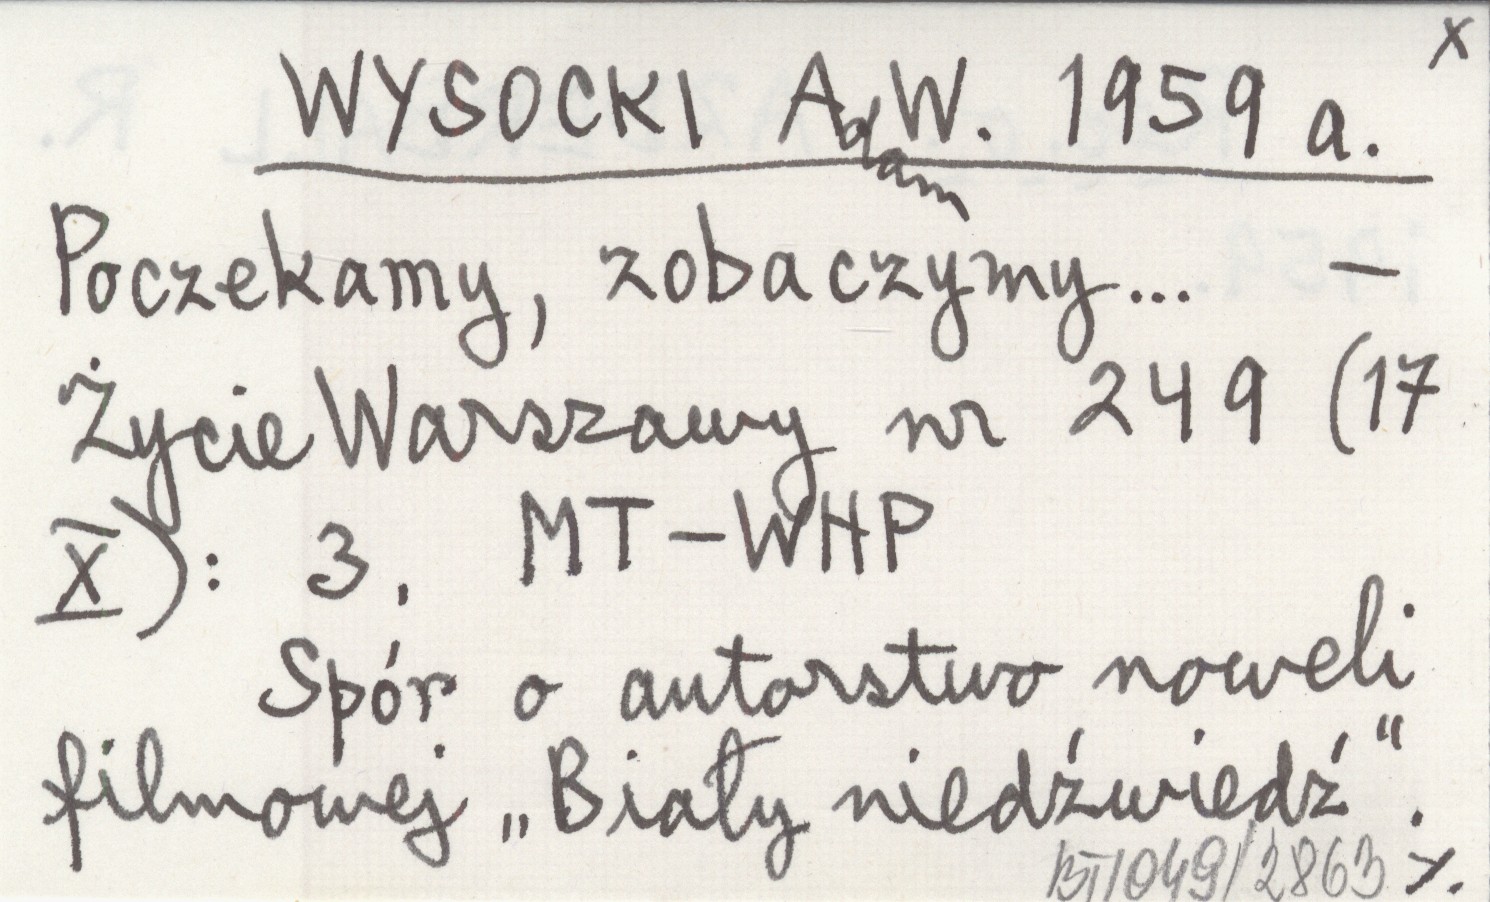 x
WYSOCKI Adam W. 1959 a.
Poczekamy, zobaczymy... –
Życie Warszawy nr 249 (17
X): 3, MT–WHP
Spór o autorstwo noweli
filmowej „Biały niedźwiedź“.
BT/049/2863